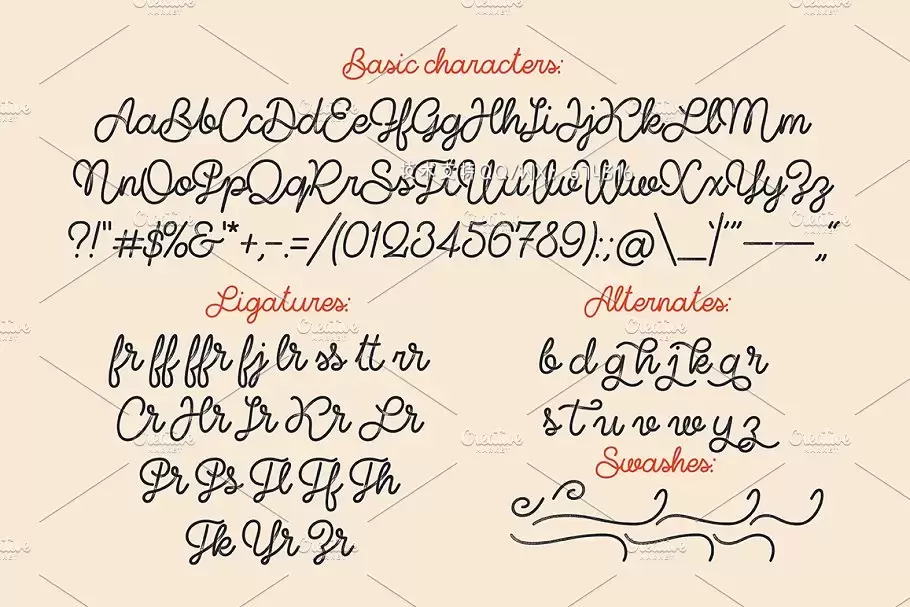 Basic characters:
AaBbCcDdEeFfGgHhIiJjKkLlMm
NnOoPpQqRrSsTtUuVvWwXxYyZz
?!"#$%&'*+,-.=/(0123456789):;@\_`|’”——„“
Ligatures:
fr ff ffr fj lr ss tt rr
Cr Hr Ir Kr Lr
Pr Ps Tl Tf Th
Tk Yr Zr
Alternates:
b d g h j k q r
s T u v w y z
Swashes:
Creative
MARKET